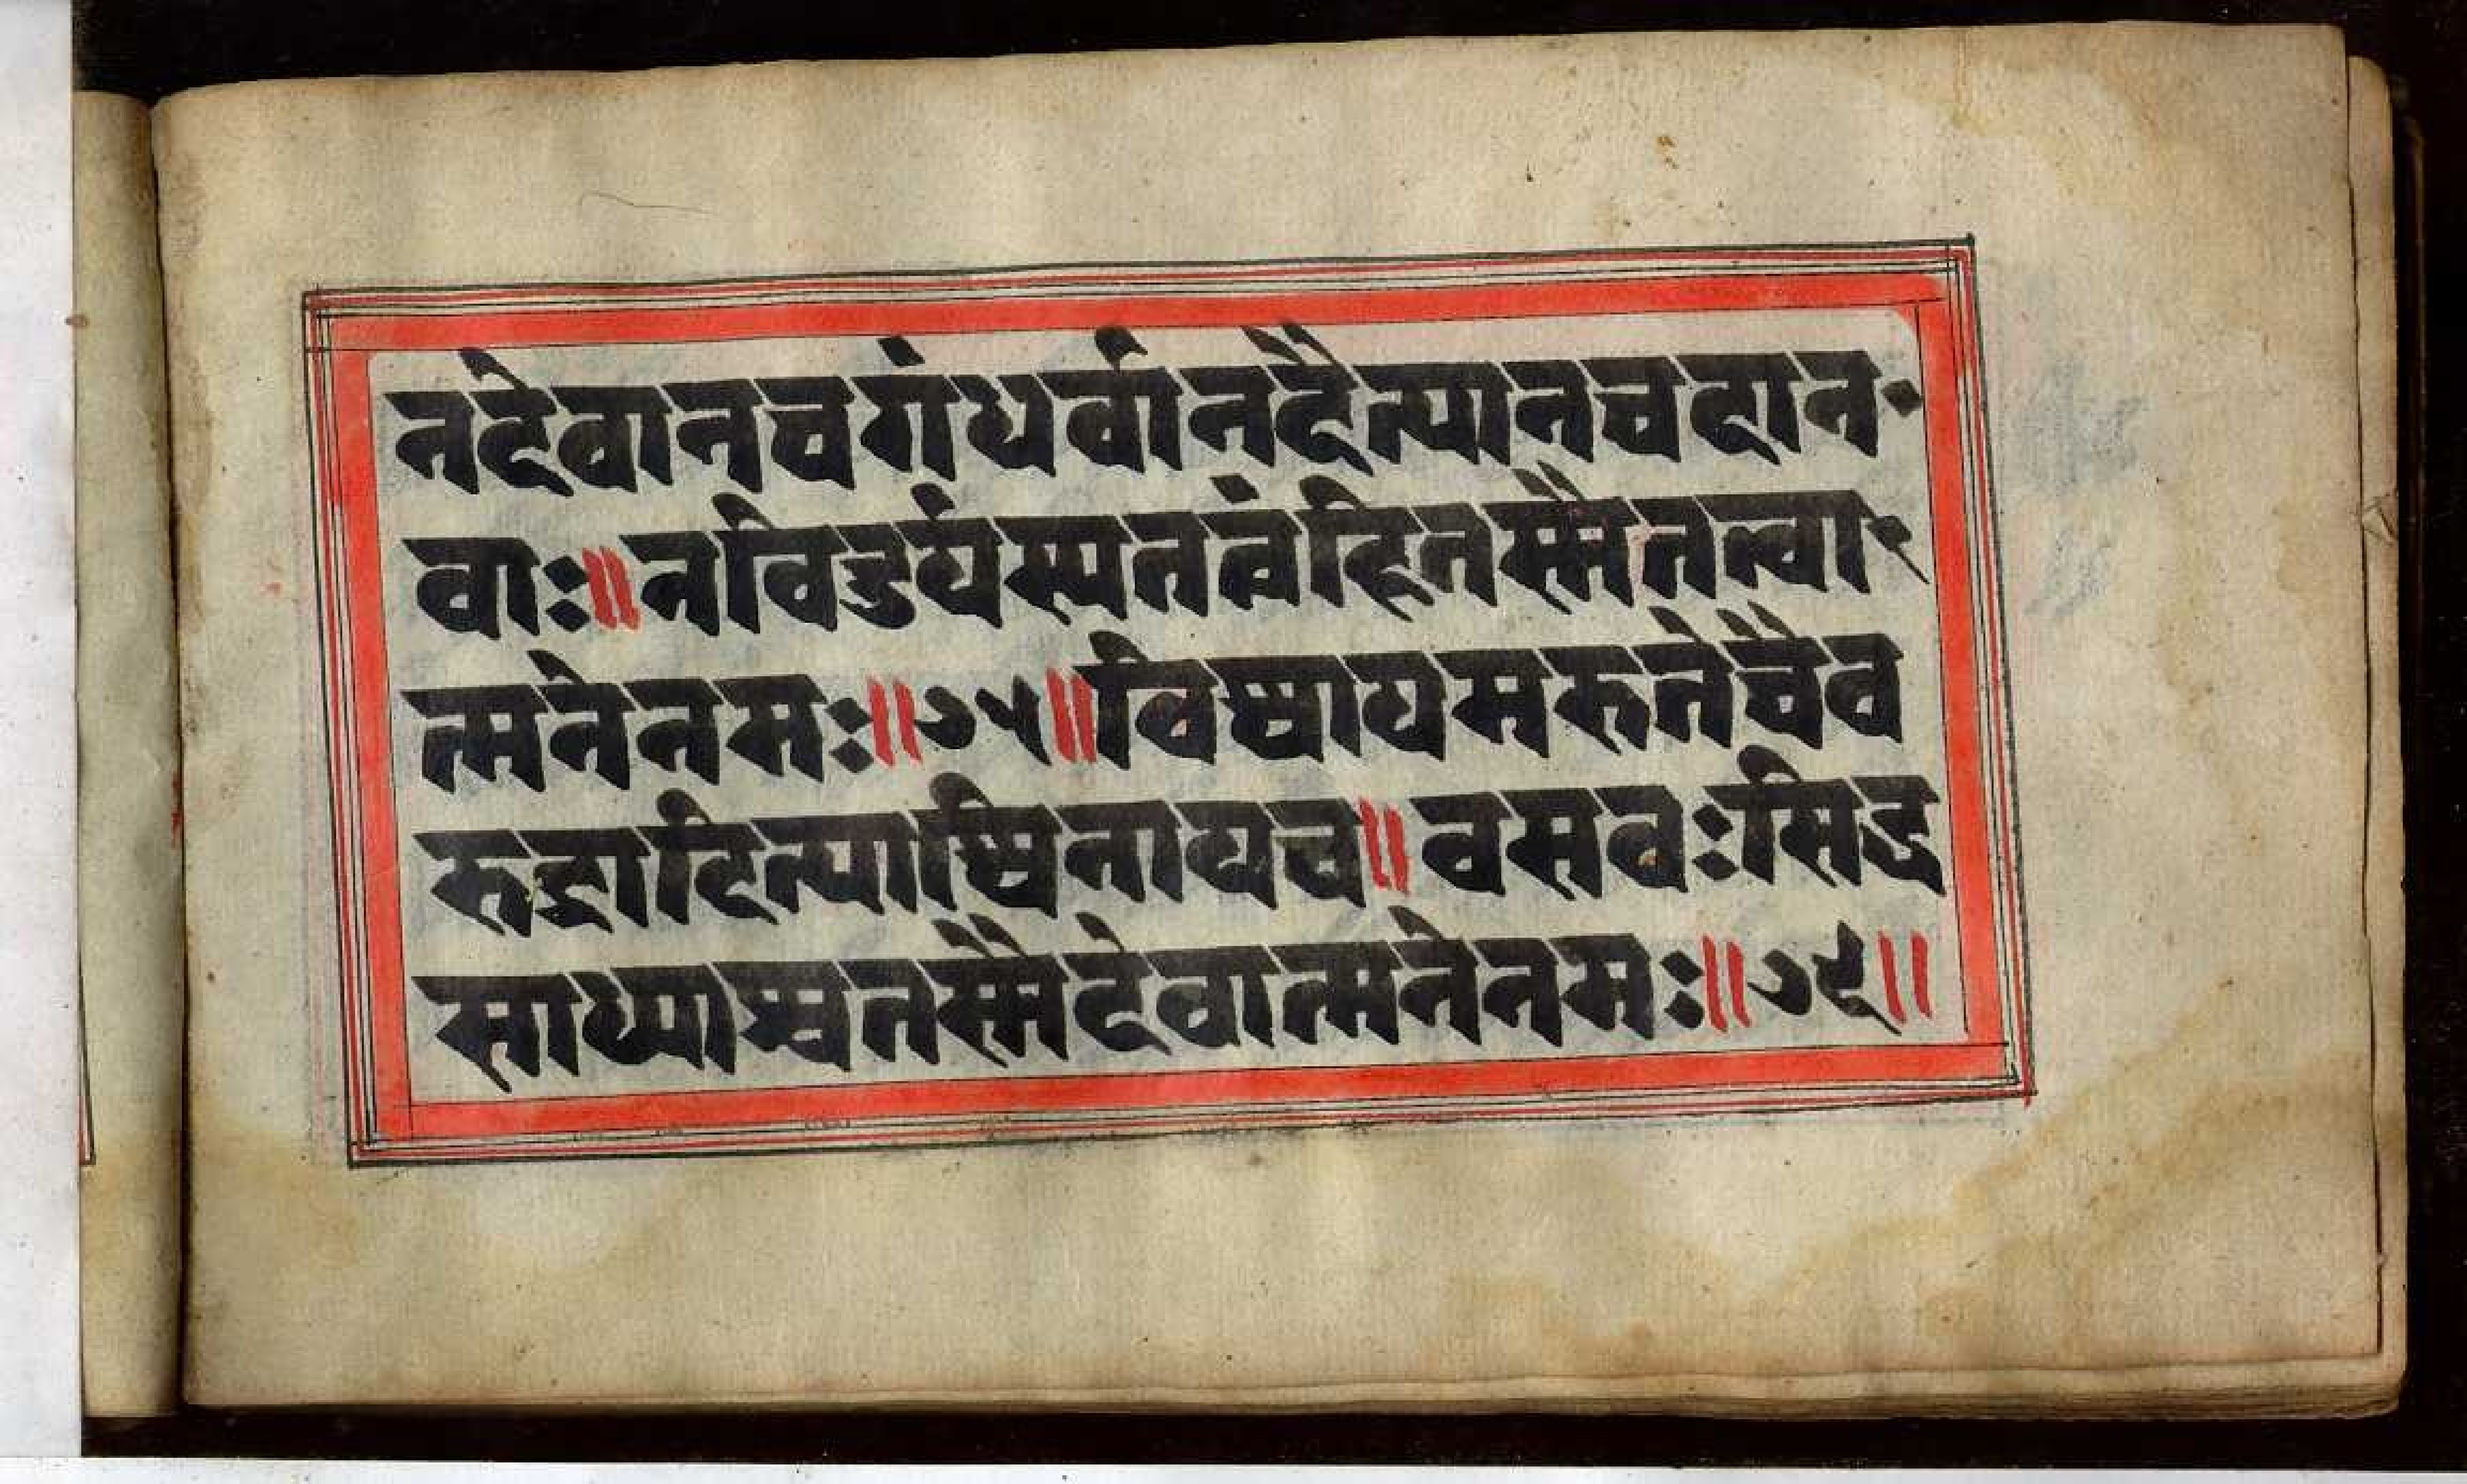 नदेवानचगंधर्वानदैत्यानचदान
वाः॥नविदुर्यस्यतत्त्वंहितस्मैतत्त्वा
त्मनेनमः॥७५॥विश्वायमरुतेचैव
रुद्रादित्याश्विनायच॥वसवःसिद्ध
साध्याश्चतस्मैदेवात्मनेनमः॥७६॥